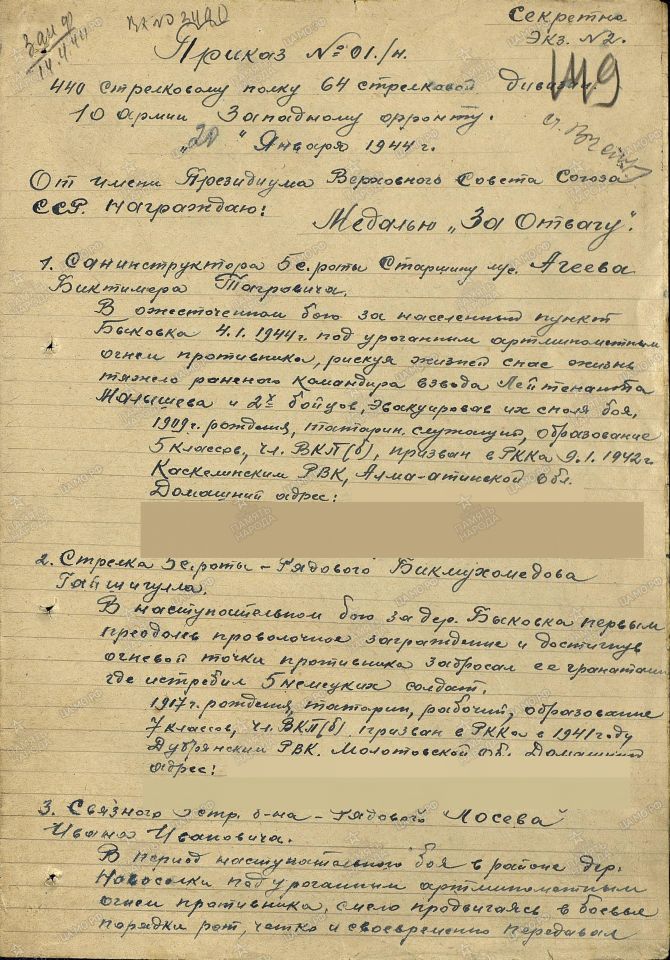 Секретно
Экз. №2.
149
14.4.44
Приказ № 01/н.
440 стрелковому полку 64 стрелковой дивизии.
10 армии Западному фронту.
„20“ Января 1944 г.
От имени Президиума Верховного Совета Союза
ССР. награждаю:
Медалью „За Отвагу“.
1. Санинструктора 5 с.роты Старшину м/с. Агеева
Биктимера Тагровича.
В ожесточенном бою за населенный пункт
Быковка 4.1.1944г. под ураганным артминометным
огнем противника, рискуя жизней спас жизнь
тяжело раненого командира взвода Лейтенанта
Малышева и 2х бойцов, эвакуировав их споля боя,
1909г. рождения, татарин, служащий, образование
5 классов, чл. ВКП(б), призван в РККа 9.1.1942г.
Каскелинским РВК, Алма-атинской обл.
Домашний адрес:
ПАМЯТЬ
НАРОДА
2. Стрелка с.роты – Рядового Бикмухомедова
Гайшигулла.
В наступательном бою за дер. Быковка первым
преодолев проволочное заграждение и достигнув
огневой точки противника забросал ее гранатами
где истребил 5 немецких солдат.
1917г. рождения, татарин, рабочий, образование
7 классов, чл. ВКП(б) призван в РККа в 1941 году
РВК. Молотовской об. Домашний
адрес:
3. Связного стр. б-на – Рядового Мосева
Ивана Ивановича.
В период наступательного боя в районе дер.
Новоселки под ураганным артминометным
огнем противника, смело продвигаясь в боевые
порядки рот, четко и своевременно передавал